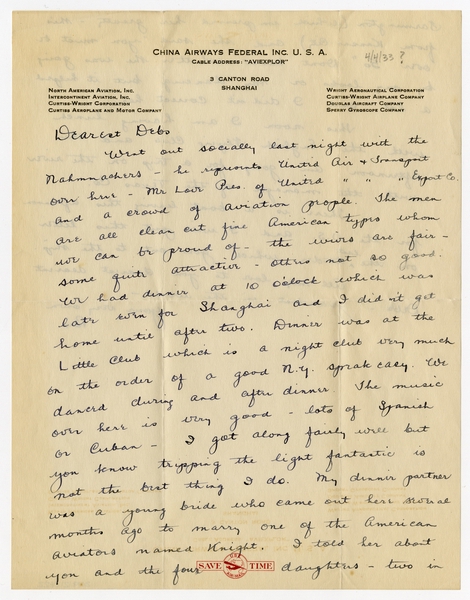 China Airways Federal Inc. U. S. A.
Cable Address: "AVIEXPLOR"
4/4/33 ?
3 CANTON ROAD
SHANGHAI
North American Aviation, Inc.
Intercontinent Aviation, Inc.
Curtiss-Wright Corporation
Curtiss Aeroplane and Motor Company
Wright Aeronautical Corporation
Curtiss-Wright Airplane Company
Douglas Aircraft Company
Sperry Gyroscope Company
Dearest Debs
Went out socially last night with the
Nahmmachers - he represents United Air & Transport
over here - Mr Love Pres. of United " " " Export Co.
and a crowd of aviation people. The men
are all clean cut fine American types whom
we can be proud of - the wives are fair -
some quite attractive - others not so good.
We had dinner at 10 o'clock which was
late even for Shanghai and I did n't get
home until after two. Dinner was at the
Little Club which is a night club very much
on the order of a good N.Y. speak easy. We
danced during and after dinner. The music
over here is very good - lots of Spanish
or Cuban - I got along fairly well but
you know tripping the light fantastic is
not the best thing I do. My dinner partner
was a young bride who came out here several
months ago to marry one of the American
aviators named Knight. I told her about
you and the four daughters - two in
SAVE TIME